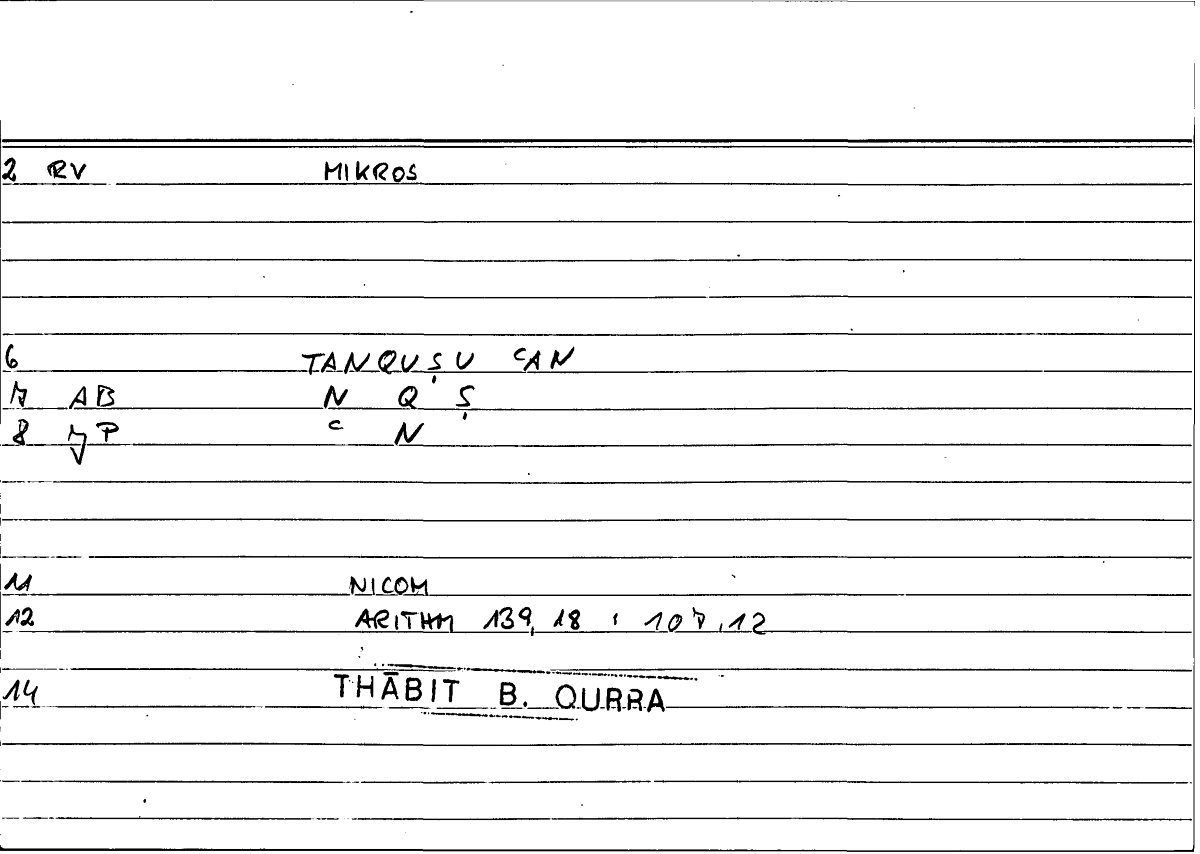 2 RV MIKROS
6 TANQUṢU ʿAN
7 AB N Q Ṣ
8 7P ʿ N
11 NICOM
12 ARITHM 139, 18 : 107,12
14 THĀBIT B. QURRA